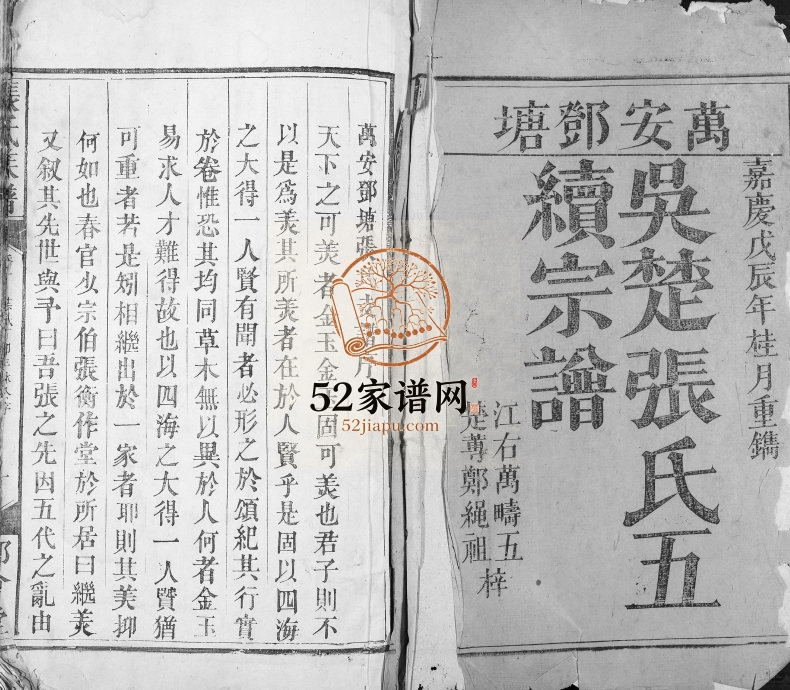 萬安鄧塘
嘉慶戊辰年桂月重鐫
吳楚張氏五
續宗譜
江右萬疇五
鄭繩祖 梓
萬安鄧塘張
天下之可美者金玉金 固可美也君子則不
以是爲美其所美者在於人賢乎是固以四海
之大得一人賢有聞者必形之於頌紀其行實
於卷惟恐其均同草木無以異於人何者金玉
易求人才難得故也以四海之大得一人賢猶
可重者若是矧相繼出於一家者耶則其美抑
何如也春官少宗伯張衡作堂於所居曰繼美
又叙其先世與予曰吾張之先因五代之亂由
張氏族譜
52家谱网
52jiapu.com